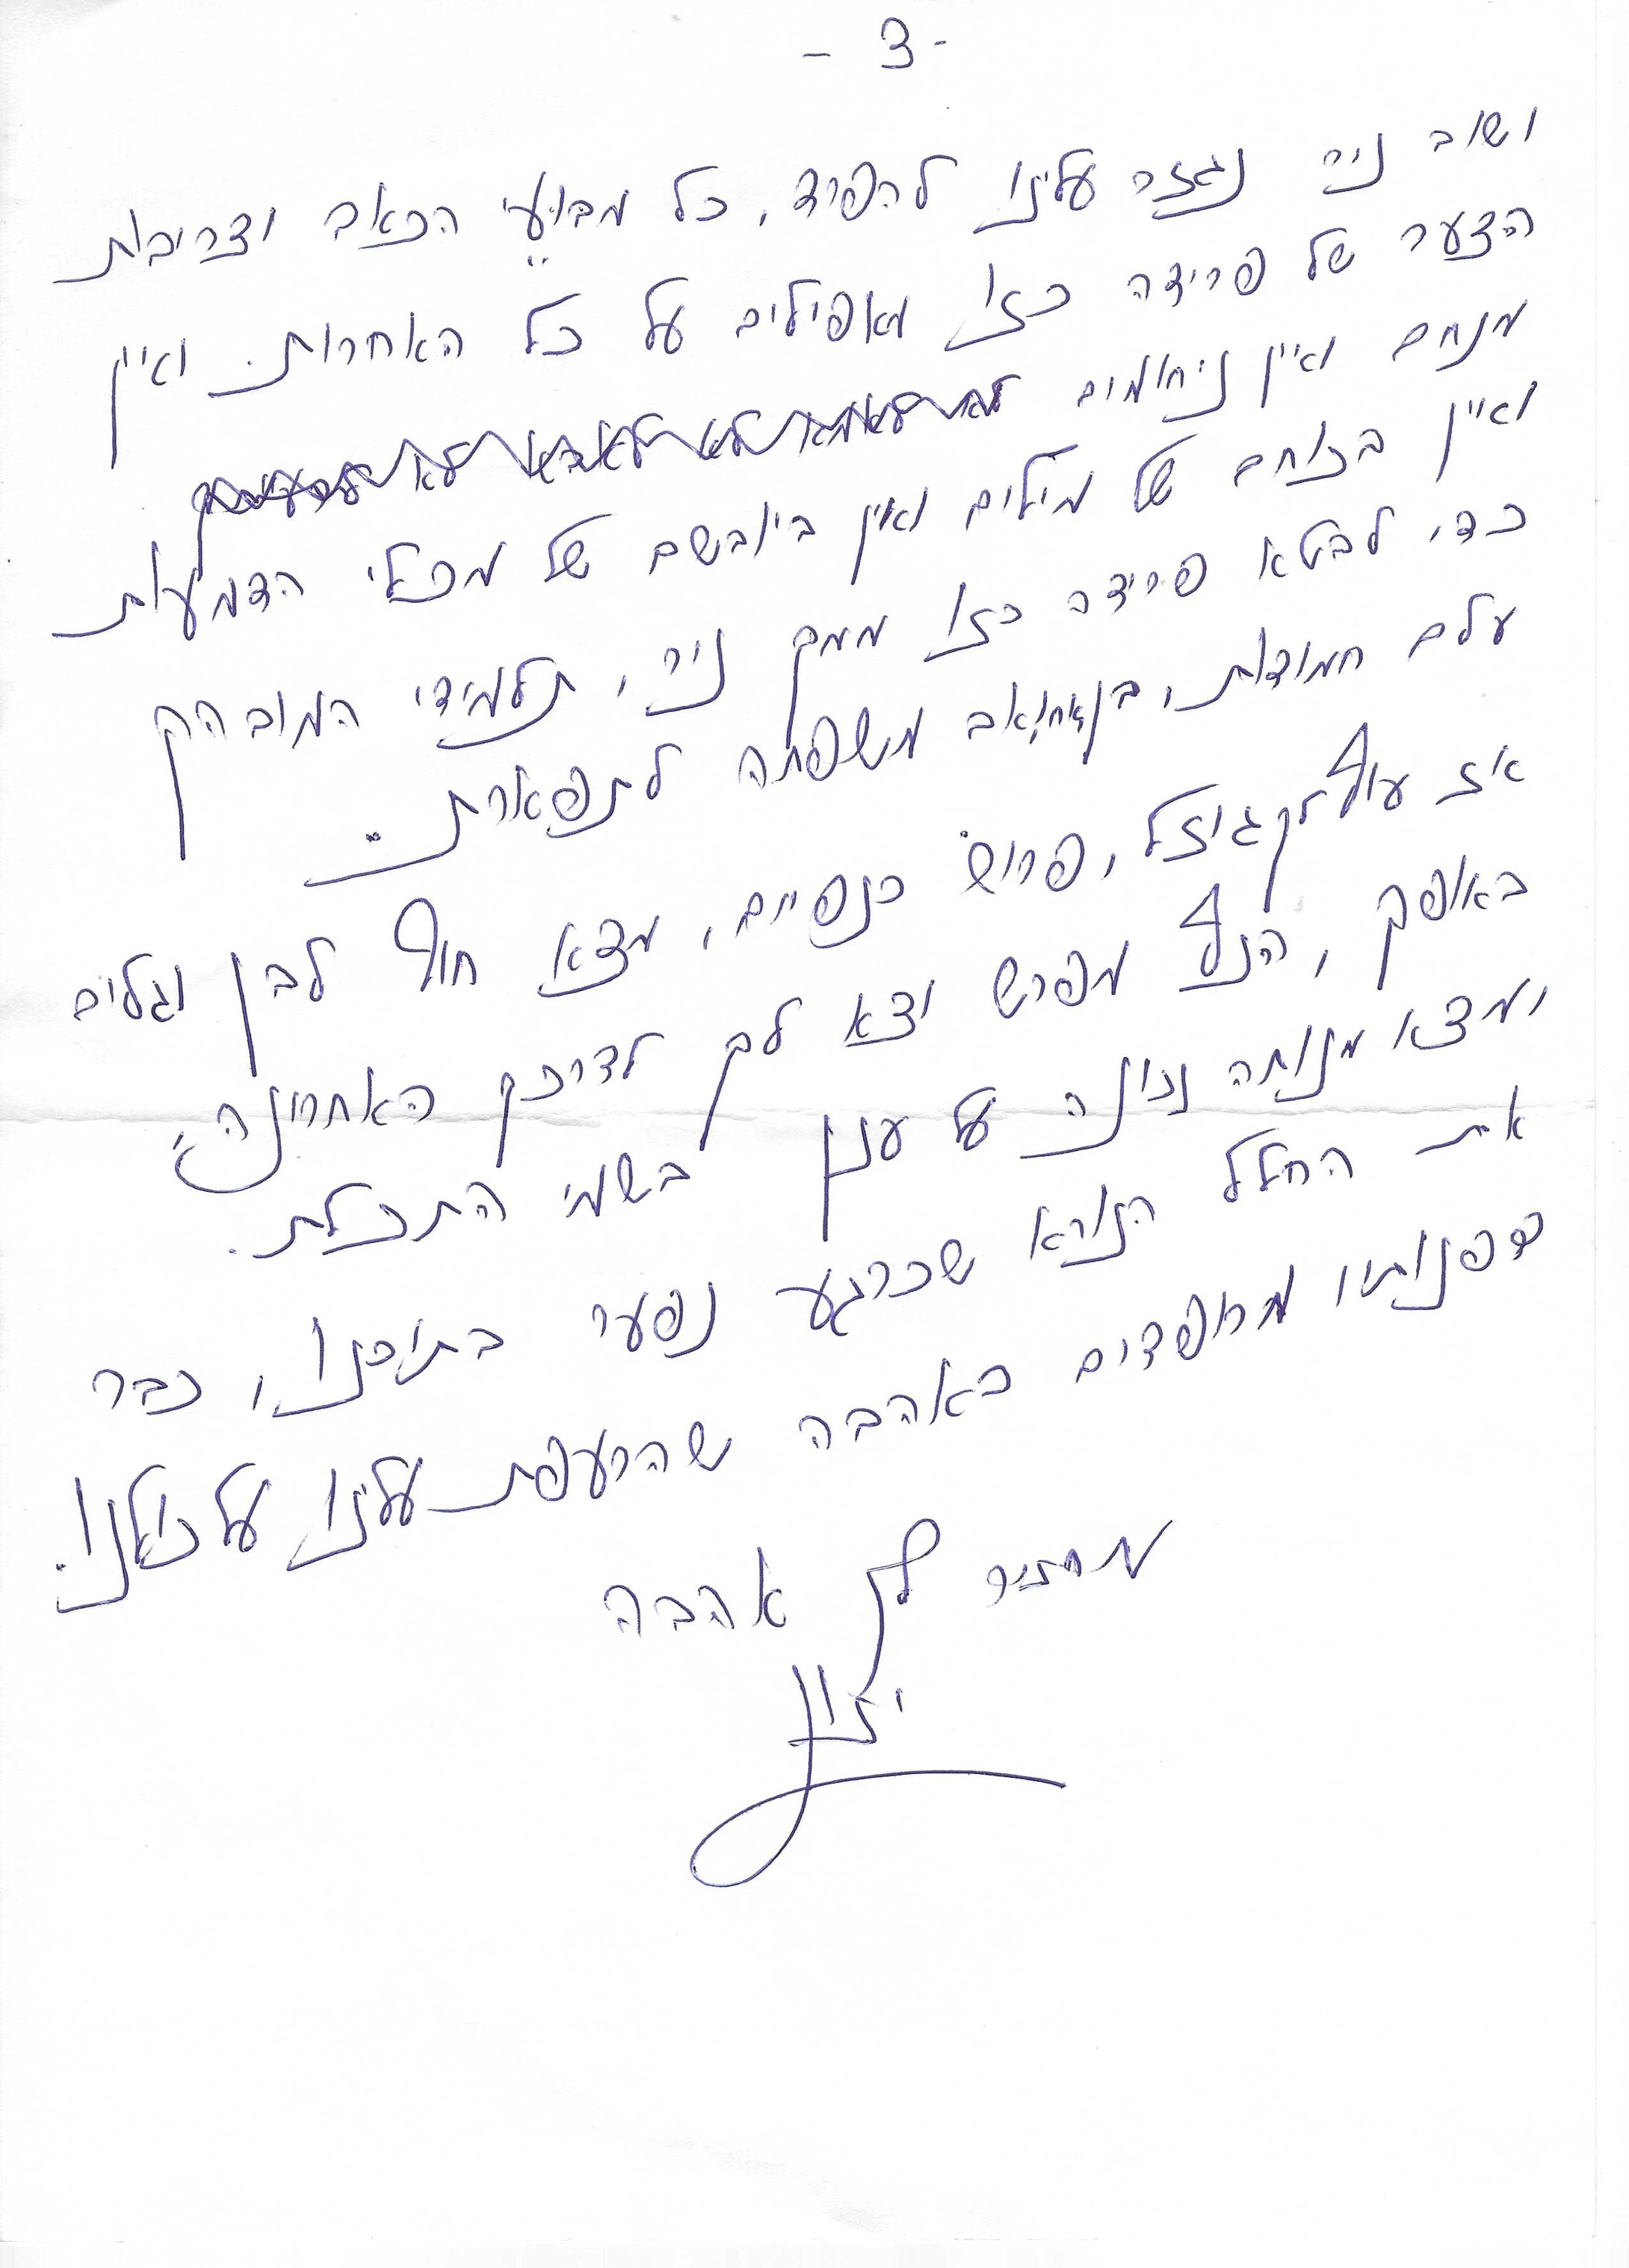 - 3 -
ושוב ניר נגזר עלינו להפרד, כל מבועי הכאב וצריבת
הצער של פרידה כזו מאפילים על כל האחרות. ואין
מנחם ואין ניחומים
ואין בכוחם של מילים ואין ביובשם של מכלי הדמעות
כדי לבטא פרידה כזו ממך ניר, תלמידי המובהק
עלם חמודות, בן אח ואב משפחה לתפארת.
אז עוף לך גוזל, פרוש כנפיים, מצא חוף לבן וגלים
באופק, הנף מפרש וצא לך לדרכך האחרונה,
ומצא מנוחה נכונה על ענן בשמי התכלת.
את החלל הנורא שכרגע נפער בתוכנו, כבר
דפנותיו מרופדים באהבה שהרעפת עלינו על כולנו.
מחזיר לך אהבה